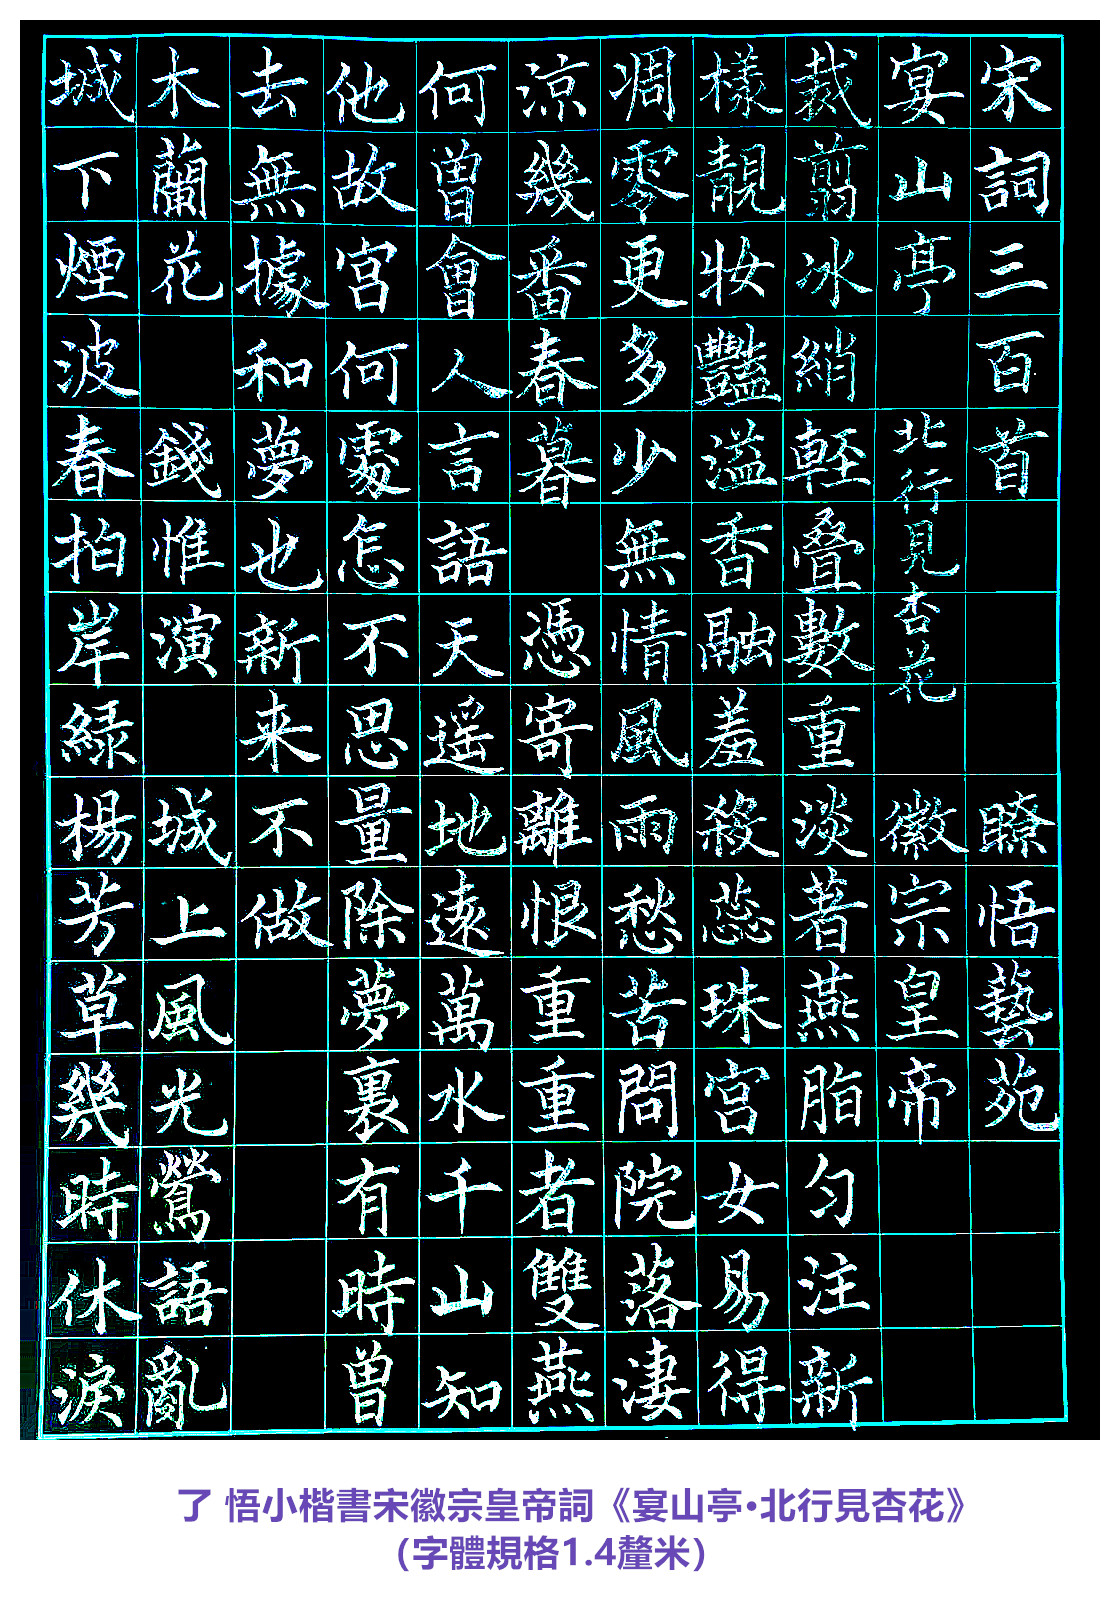 宋詞三百首 瞭悟藝苑
宴山亭 北行見杏花 徽宗皇帝
裁翦冰綃輕叠數重淡著燕脂匀注新
樣靚妝豔溢香融羞殺蕊珠宮女易得
凋零更多少無情風雨愁苦問院落凄
涼幾番春暮 憑寄離恨重重者雙燕
何曾會人言語天遥地遠萬水千山知
他故宮何處怎不思量除夢裏有時曾
去無據和夢也新来不做
木蘭花 錢惟演 城上風光鶯語亂
城下煙波春拍岸緑楊芳草幾時休淚
了 悟小楷書宋徽宗皇帝詞《宴山亭•北行見杏花》
（字體規格1.4釐米）